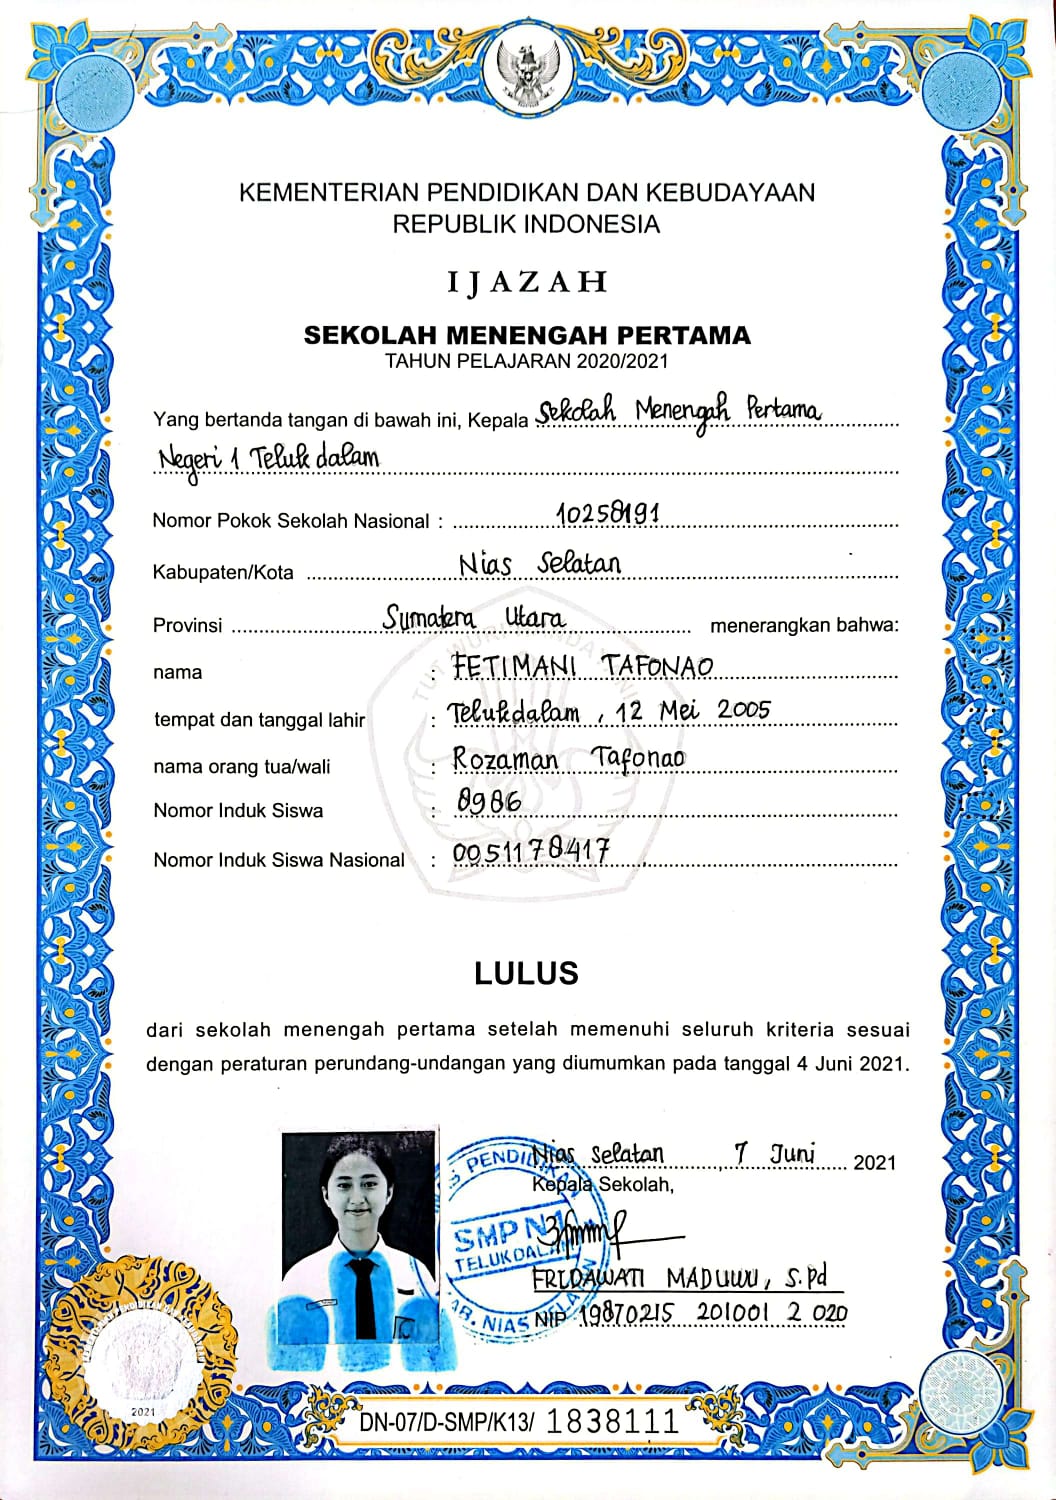 KEMENTERIAN PENDIDIKAN DAN KEBUDAYAAN
REPUBLIK INDONESIA
IJAZAH
SEKOLAH MENENGAH PERTAMA
TAHUN PELAJARAN 2020/2021
Yang bertanda tangan di bawah ini, Kepala Sekolah Menengah Pertama
Negeri 1 Telukdalam
Nomor Pokok Sekolah Nasional : 10258191
Kabupaten/Kota Nias Selatan
Provinsi Sumatera Utara menerangkan bahwa:
nama : FETIMANI TAFONAO
tempat dan tanggal lahir : Telukdalam, 12 Mei 2005
nama orang tua/wali : Rozaman Tafonao
Nomor Induk Siswa : 8986
Nomor Induk Siswa Nasional : 0051178417
LULUS
dari sekolah menengah pertama setelah memenuhi seluruh kriteria sesuai
dengan peraturan perundang-undangan yang diumumkan pada tanggal 4 Juni 2021.
Nias Selatan, 7 Juni 2021
Kepala Sekolah,
SMP N.1
TELUKDALAM
FRIDAWATI MADUWU, S.Pd
NIP 19870215 201001 2 020
2021
DN-07/D-SMP/K13/ 1838111